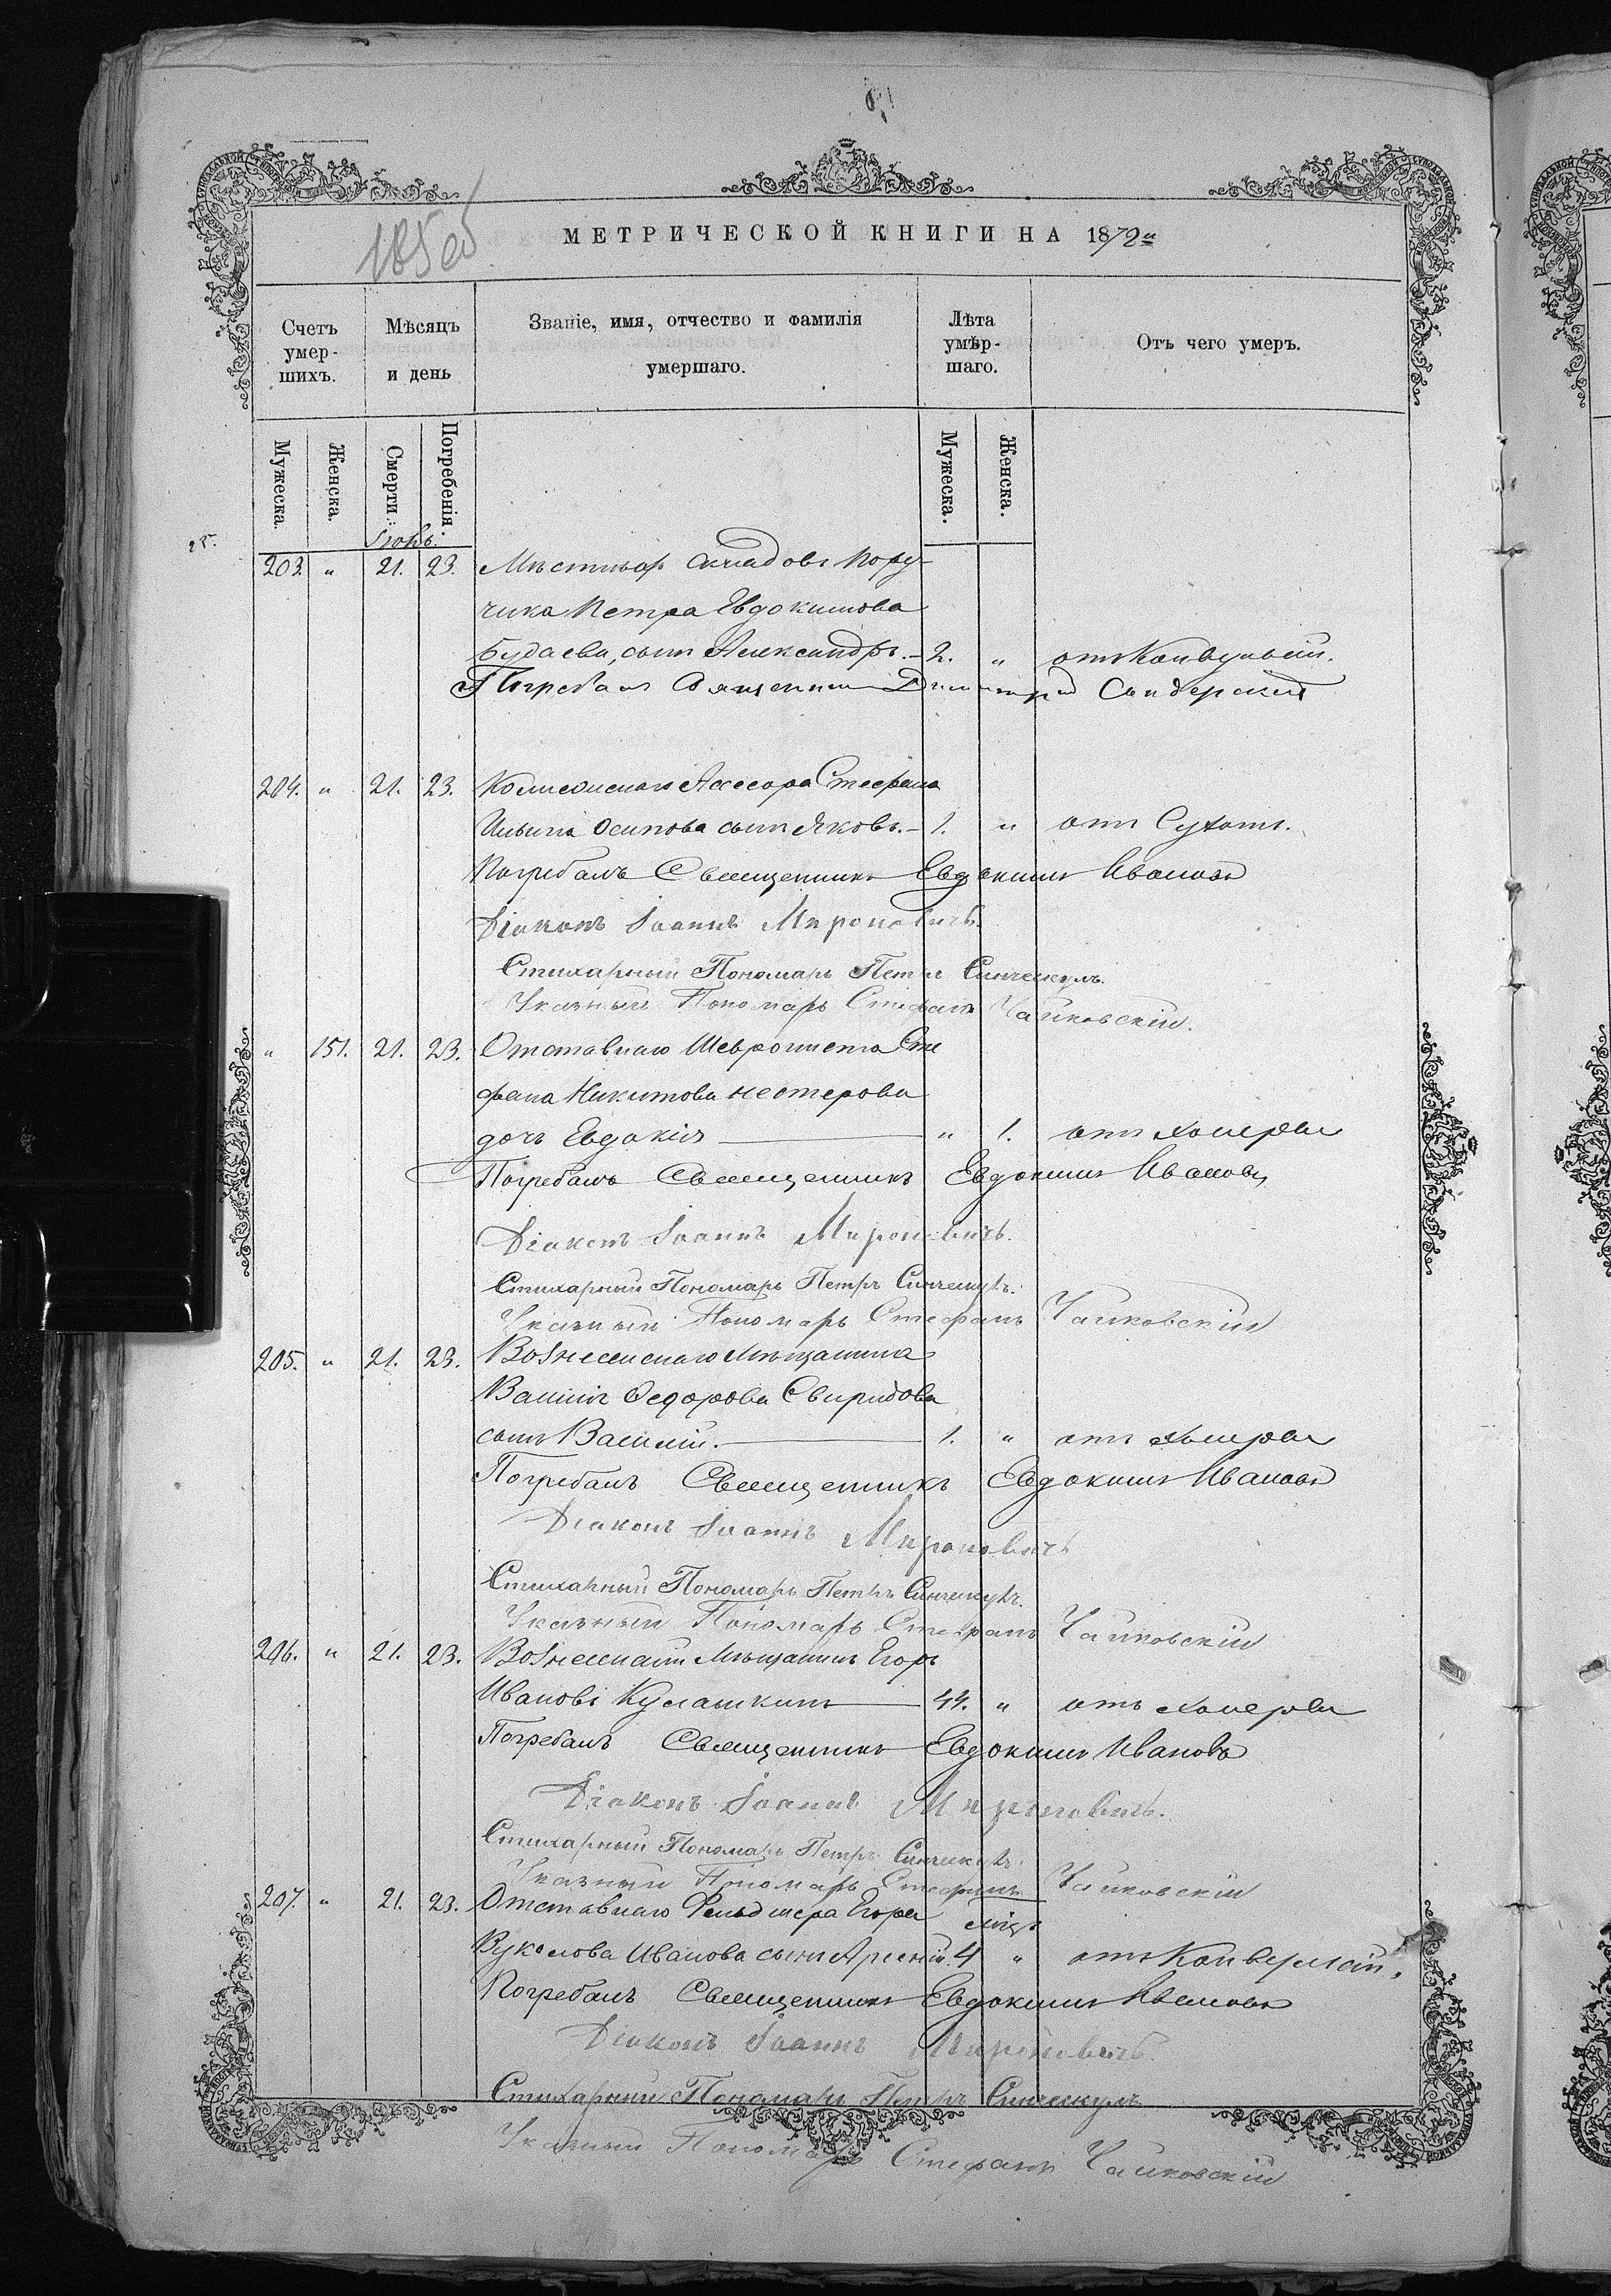 185 об
МЕТРИЧЕСКОЙ КНИГИ НА 1872й
Счетъ умер-шихъ.
Мѣсяцъ и день
Званіе, имя, отчество и фамилія умершаго.
Лѣта умѣр-шаго.
Отъ чего умеръ.
Мужеска. Женска. Смерти. Погребенія. Мужеска. Женска.
Іюнь.
203. " 21. 23. складовъ Пору-
чика Петра Евдокимова
Будаева, сынъ Александръ. - 2. " отъ Конвульсій.
Погребалъ Священникъ Димитрій
204. " 21. 23. Ассесора Стефана
Ильина Осипова сынъ Яковъ. - 1. " отъ Сухотъ.
Погребалъ Священникъ Евдокимъ Ивановъ
Діаконъ Іоаннъ Мироновичъ.
Стихарный Пономарь Петръ Синческулъ.
Указный Пономарь Стефанъ Чайковскій.
" 151. 21. 23. Отставнаго Шеврониста Сте
фана Никитова Нестерова
дочь Евдокія " 1. отъ холеры
Погребалъ Священникъ Евдокимъ Ивановъ
Діаконъ Іоаннъ Мироновичъ.
Стихарный Пономарь Петръ Синческулъ.
Указный Пономарь Стефанъ Чайковскій
205. " 21. 23. Вознесенскаго Мѣщанина
Василія Федорова Свиридова
сынъ Василій. 1. " отъ холеры
Погребалъ Священникъ Евдокимъ Ивановъ
Діаконъ Іоаннъ Мироновичъ
Стихарный Пономарь Петръ Синческулъ.
Указный Пономарь Стефанъ Чайковскій
206. " 21. 23. Вознесенскій Мѣщанинъ Егоръ
Ивановъ Кулашкинъ 44. " отъ холеры
Погребалъ Священникъ Евдокимъ Ивановъ
Діаконъ Іоаннъ Мироновичъ.
Стихарный Пономарь Петръ Синческулъ.
Указный Пономарь Стефанъ Чайковскій
207. " 21. 23. Отставнаго Фельдшера Егора мѣц.
Вуколова Иванова сынъ Арсеній. 4 " отъ Конвульсій.
Погребалъ Священникъ Евдокимъ Ивановъ
Діаконъ Іоаннъ Мироновичъ.
Стихарный Пономарь Петръ Синческулъ
Указный Пономарь Стефанъ Чайковскій